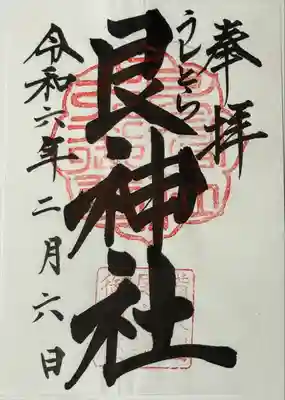 奉拝
うしとら
艮神社
令和六年二月六日